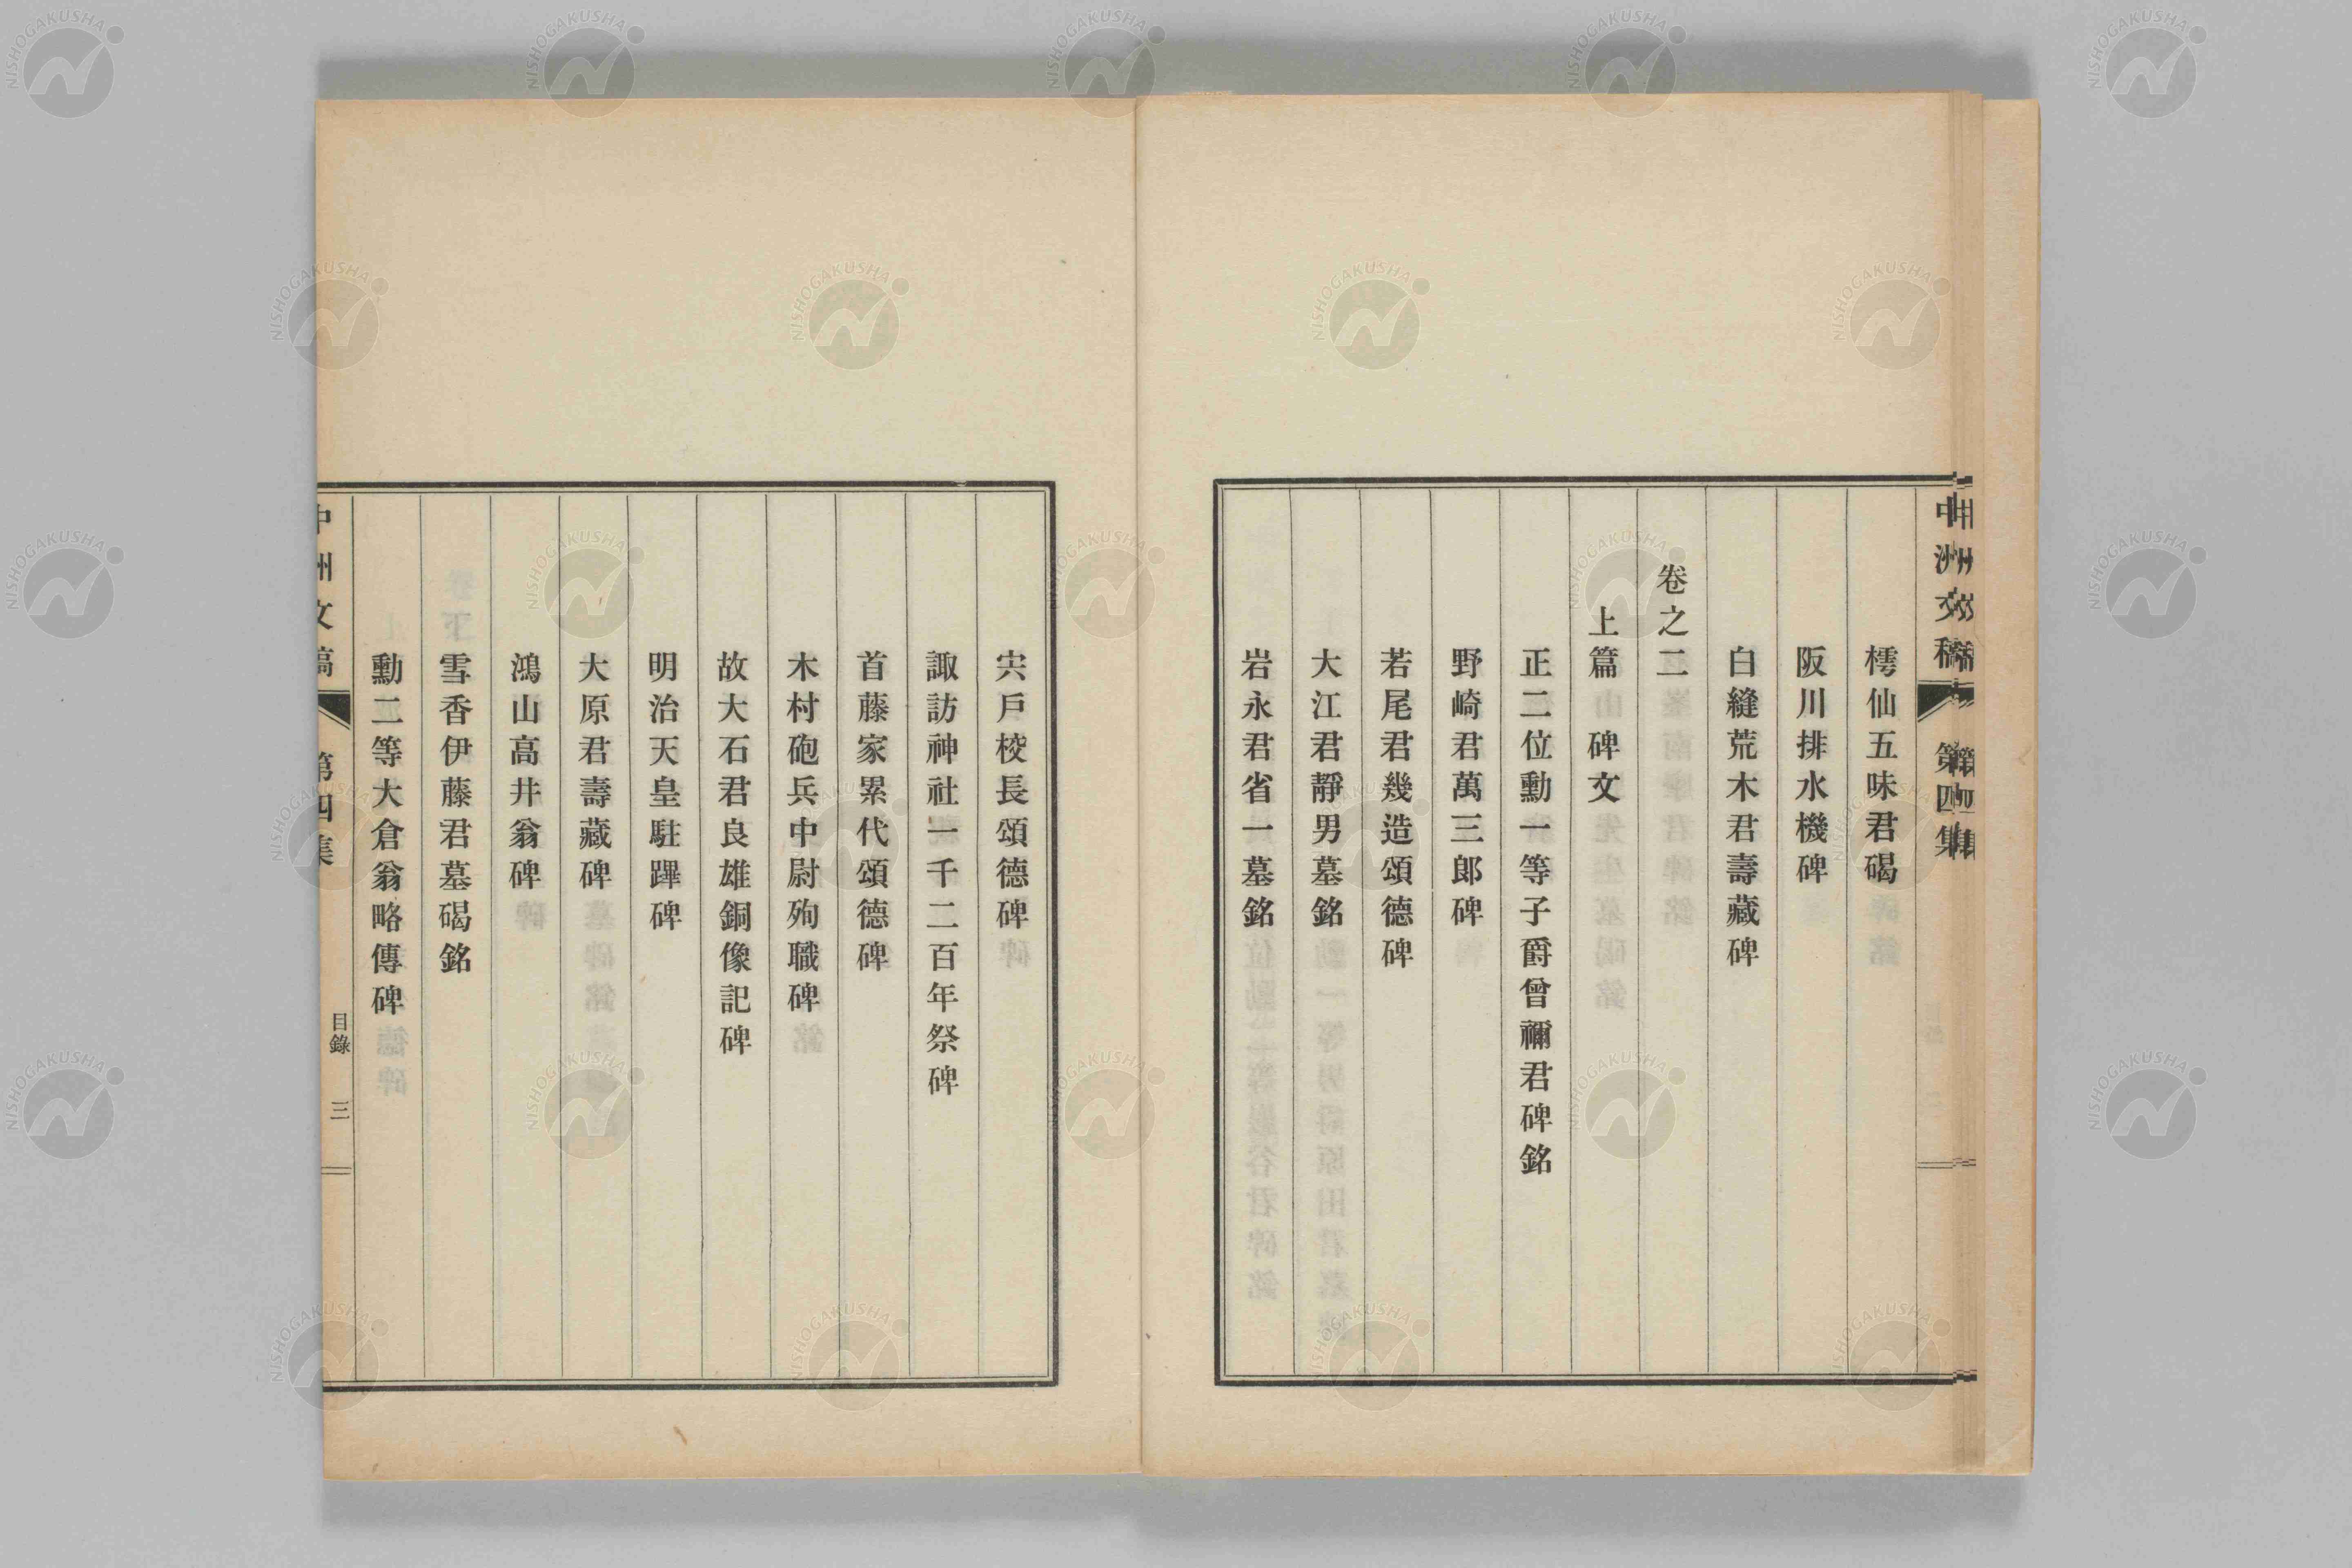 中洲文稿 第四集
樗仙五味君碣
阪川排水機碑
白縫荒木君壽藏碑
卷之二
上篇 碑文
正二位勳一等子爵曾禰君碑銘
野崎君萬三郎碑
若尾君幾造頌德碑
大江君靜男墓銘
岩永君省一墓銘
宍戶校長頌德碑
諏訪神社一千二百年祭碑
首藤家累代頌德碑
木村砲兵中尉殉職碑
故大石君良雄銅像記碑
明治天皇駐蹕碑
大原君壽藏碑
鴻山高井翁碑
雪香伊藤君墓碣銘
勳二等大倉翁略傳碑
中洲文稿 第四集 目錄 三
NISHOGAKUSHA